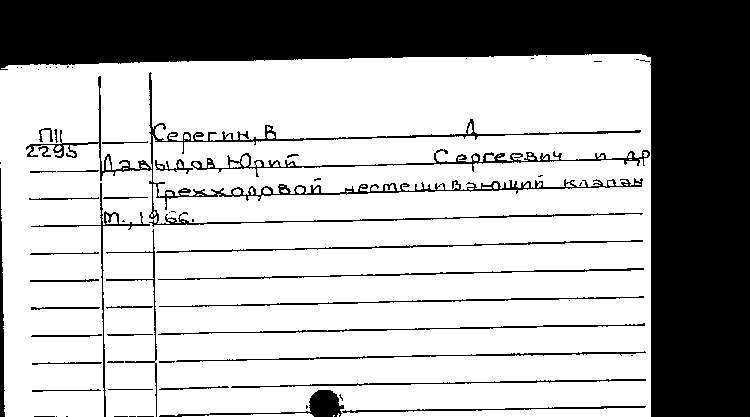 П11
2295
Серегин, В Д
Давыдов, Юрий Сергеевич и др
Трехходовой несмешивающий клапан
М., 1966.